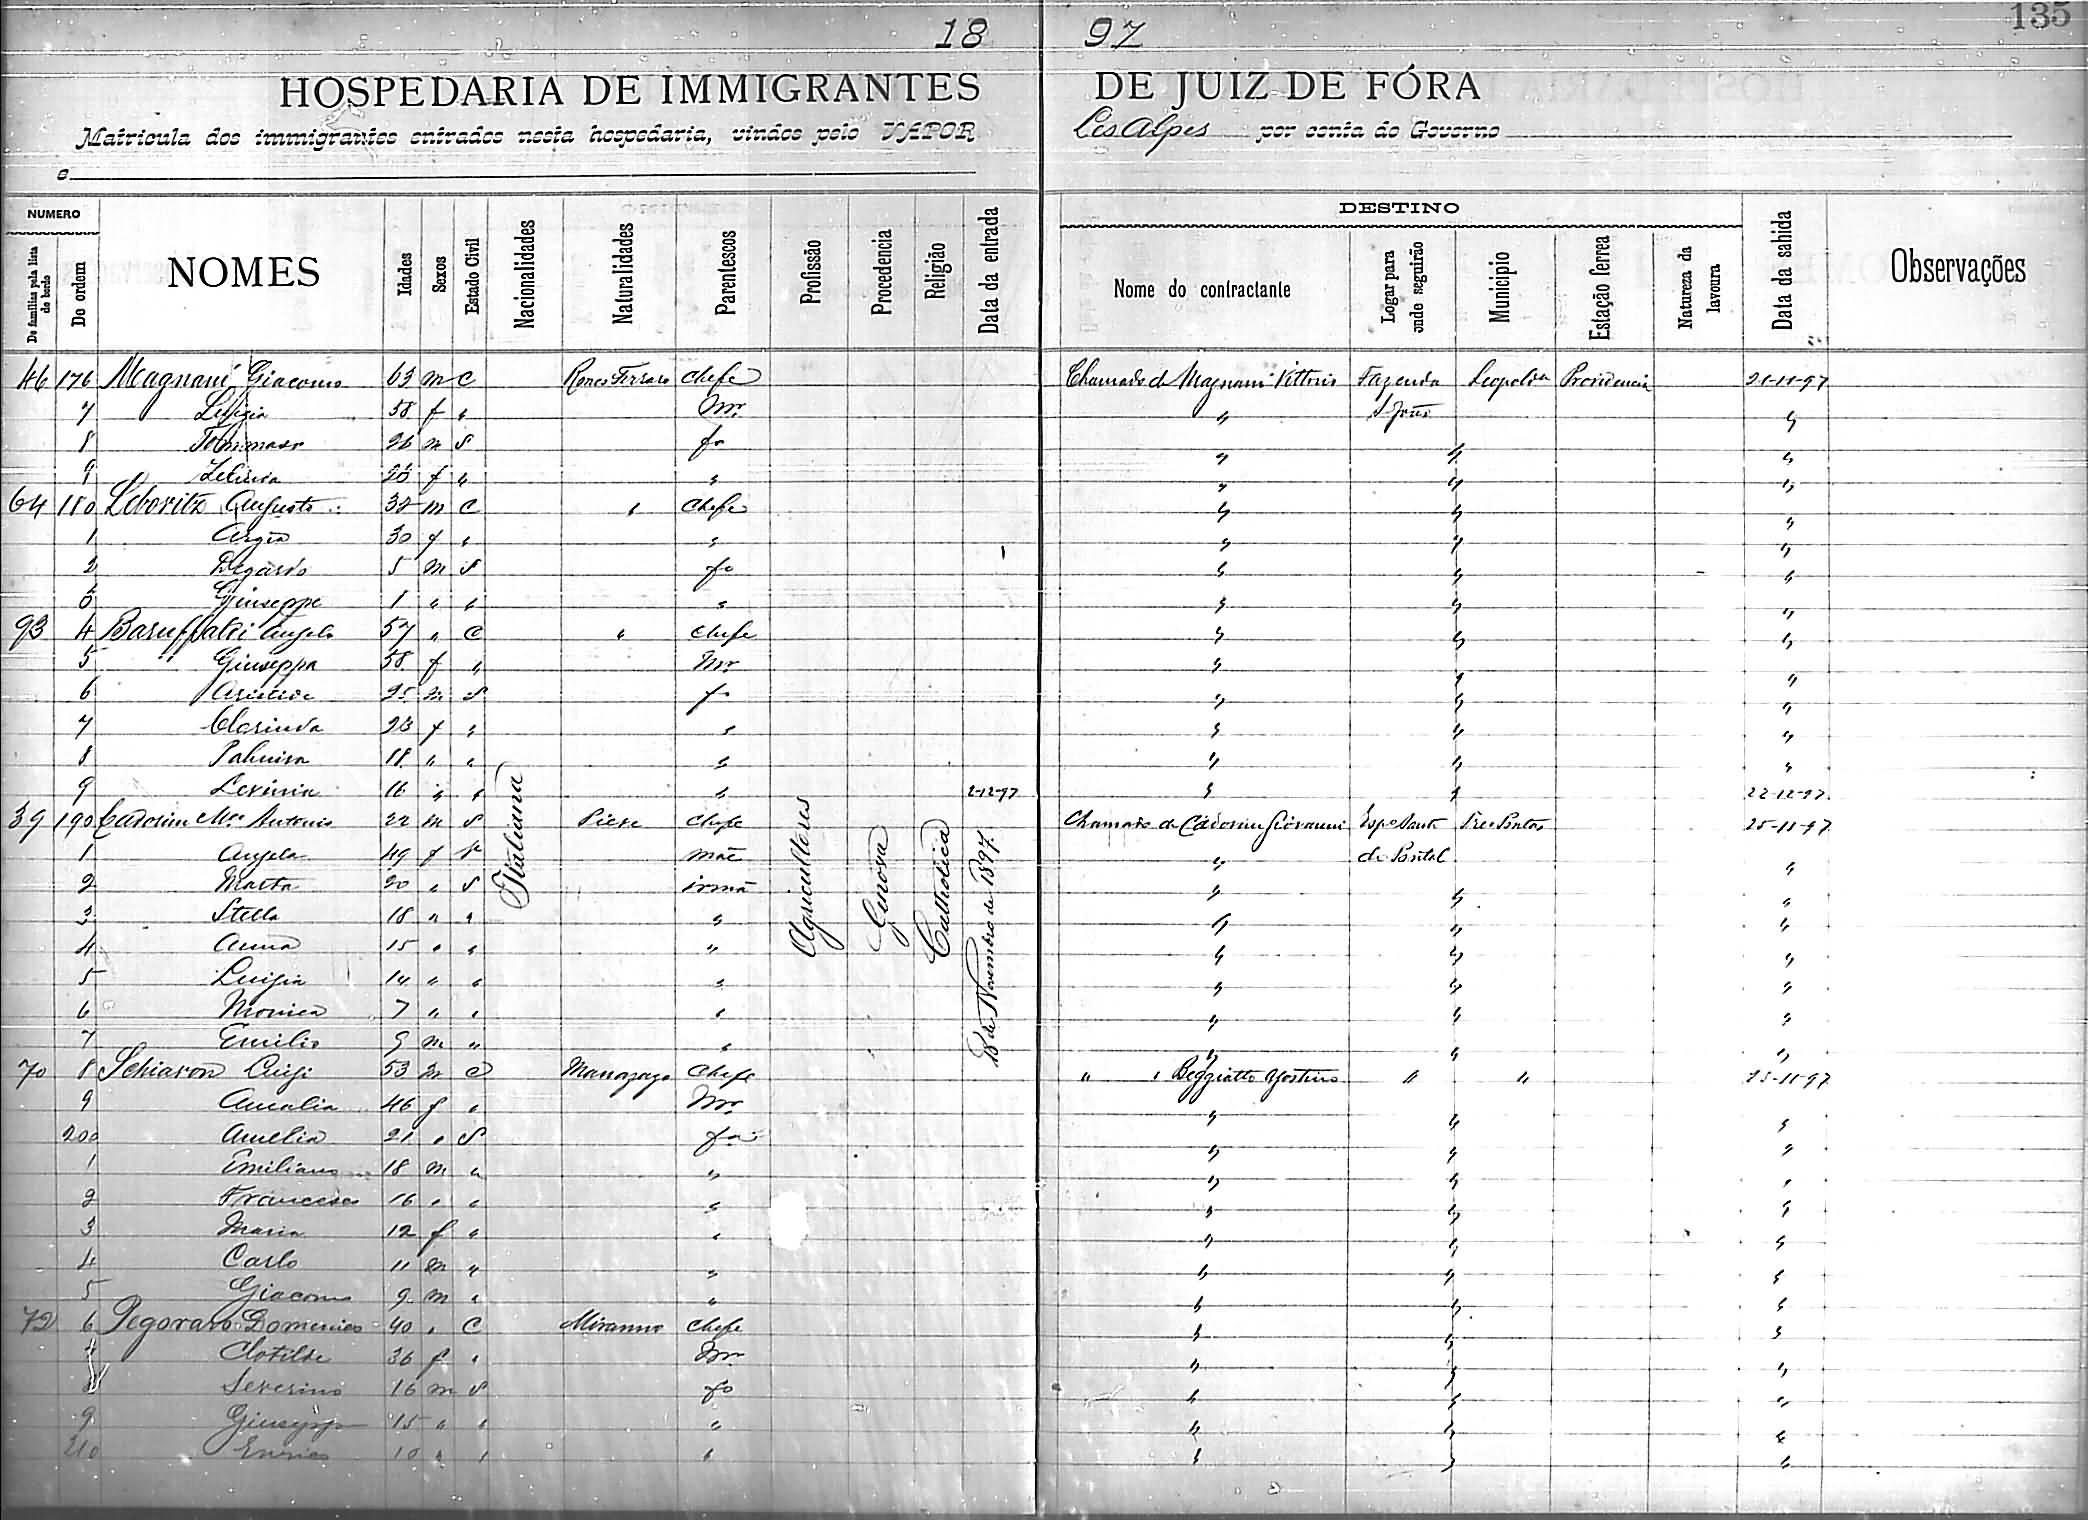 135
18 97
HOSPEDARIA DE IMMIGRANTES DE JUIZ DE FÓRA
Matricula dos immigrantes entrados nesta hospedaria, vindos pelo VAPOR Les Alpes por conta do Governo
e
NUMERO DESTINO
De familias pela lista de bordo De ordem NOMES Idades Sexos Estado Civil Nacionalidades Naturalidades Parentescos Profissão Procedencia Religião Data da entrada Nome do contractante Logar para onde seguirão Municipio Estação ferrea Natureza da lavoura Data da sahida Observações
46 176 Magnani Giacomo 63 m C Ronco Ferraro Chefe Chamado de Magnani Vittorio Fazenda Leopoldina Providencia 21-11-97
7 Luigia 58 f " Mr " S João "
8 Tommaso 26 m S fo " " "
9 Zelinda 23 f " " " " "
64 180 Leboritz Augusto 32 m C " Chefe " " "
1 Argia 30 f " " " " "
2 Degardo 5 m S fo " " "
3 Giuseppe 1 " " " " " "
93 4 Baruffaldi Angelo 57 " C " Chefe " " "
5 " Giuseppa 58 f " Mr " " "
6 Aristide 25 m S fo " " "
7 Clorinda 23 f " " " " "
8 Palmira 18 " " " " " "
9 16 " " " 2-12-97 " " 22-12-97
39 190 Cadorim Mco Antonio 22 m S Pieve Chefe Chamado de Cadorim Giovanni Espo Santo Tres Pontas 25-11-97
1 Angela 49 f v mãe " do Pontal "
2 Marta 20 " S irmã " " "
3 Stella 18 " " " " " "
4 Anna 15 " " " " " "
5 Luigia 14 " " " " " "
6 Monica 7 " " " " " "
7 Emilio 9 m " " " " "
70 8 Schiavon Luigi 53 m C Chefe " " Beggiatto Agostino " " 25-11-97
9 Amalia 46 f " Mr " " "
200 Amelia 21 " S fa " " "
1 Emiliano 18 m " " " " "
2 Francesco 16 " " " " " "
3 Maria 12 f " " " " "
4 Carlo 11 m " " " " "
5 Giacomo 9 m " " " " "
72 6 Pegoraro Domenico 40 " C Miranno Chefe " " "
7 Clotilde 36 f " Mr " " "
8 Severino 16 m S fo " " "
9 Giuseppe 15 " " " " " "
210 Enrico 10 " " " " " "
Italiana
Agricultores
Genova
Catholica
18 de Novembro de 1897